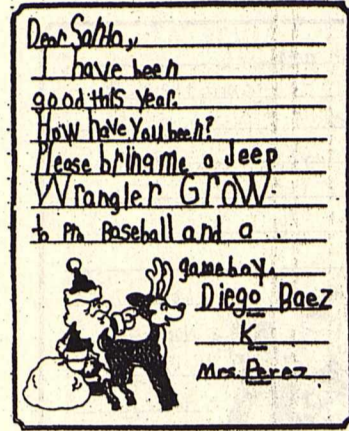 Dear Santa,
I have been
good this year.
How have you been?
Please bring me a Jeep
Wrangler Grow
to Pro Baseball and a
gameboy.
Diego Baez
K
Mrs. Perez